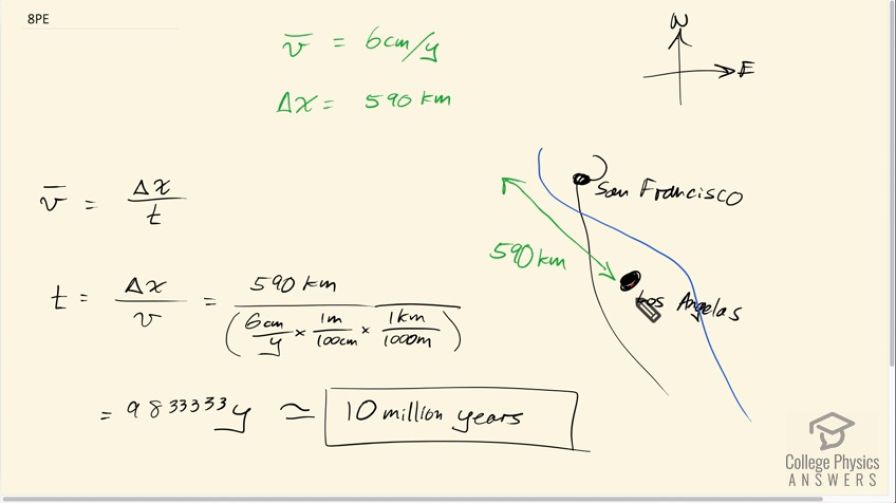 8PE
v̅ = 6cm/y
Δx = 590 km
N
E
San Francisco
590 km
Los Angelas
v̅ = Δx / t
t = Δx / v = 590 km / (6cm/y × 1m/100cm × 1km/1000m)
= 9833333y ≃ 10 million years
College Physics
ANSWERS